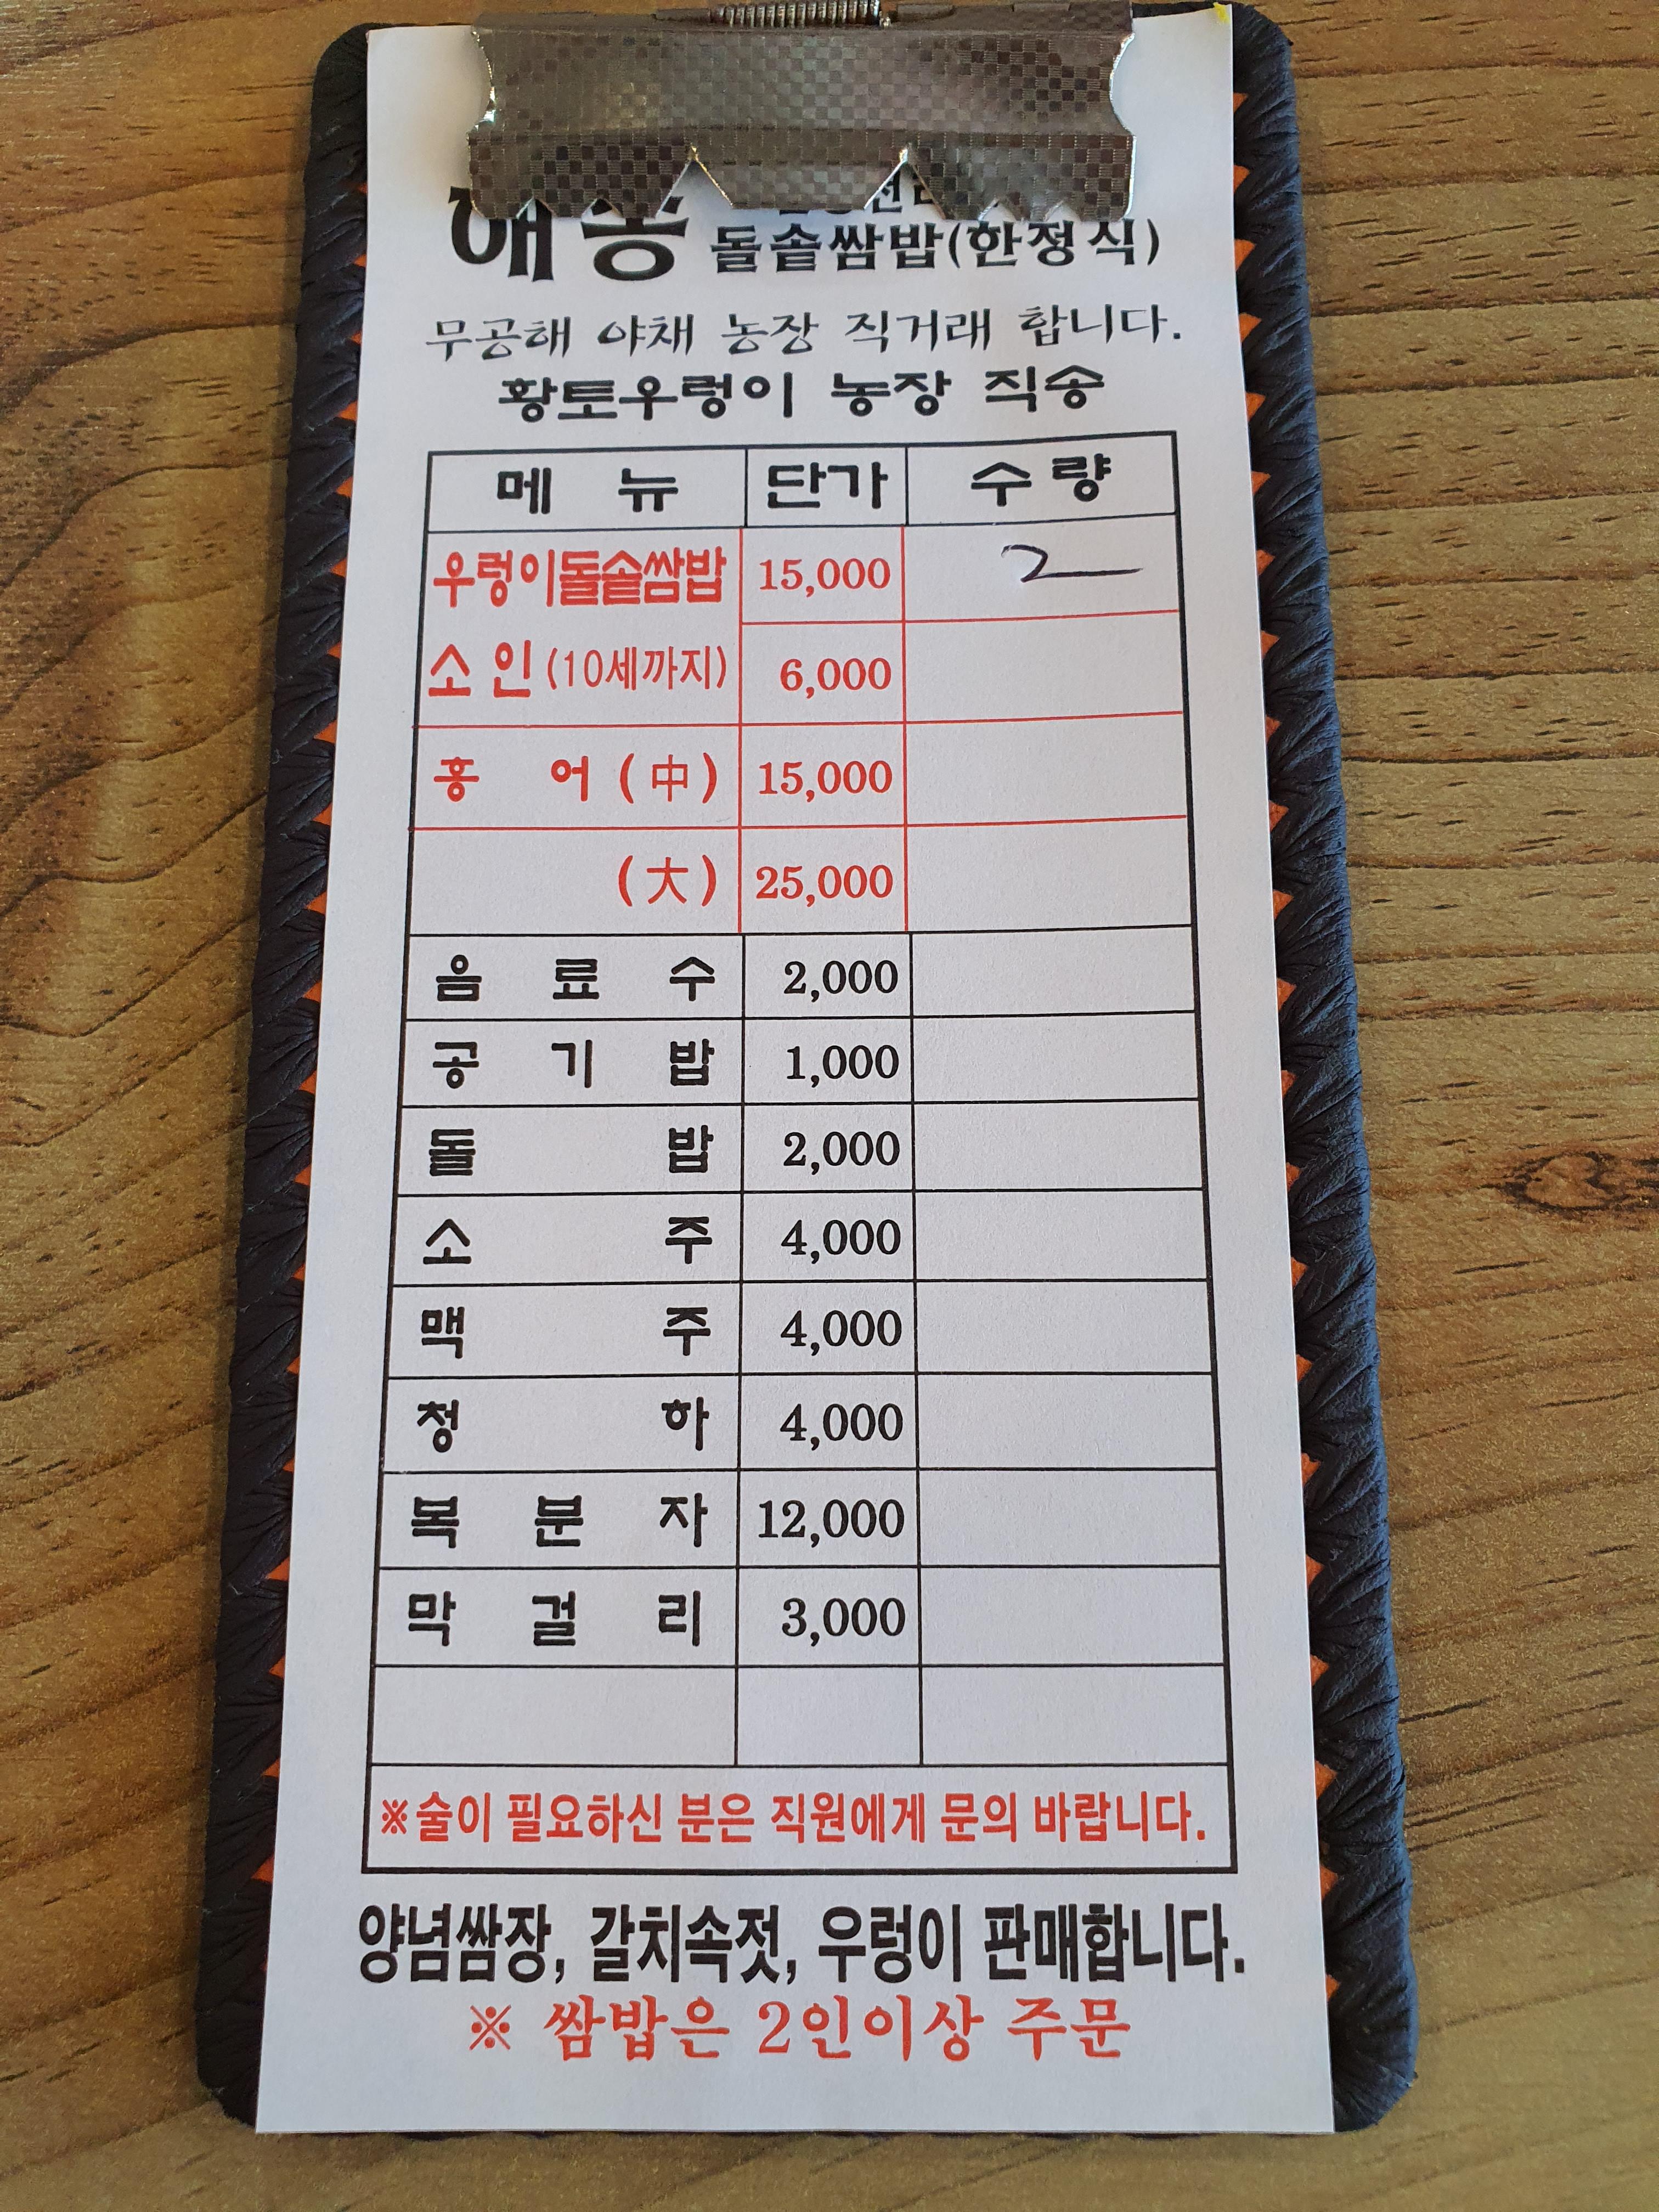 돌솥쌈밥(한정식)
무공해 야채 농장 직거래 합니다.
황토우렁이 농장 직송
메 뉴 단가 수량
우렁이돌솥쌈밥 15,000 2
소 인 (10세까지) 6,000
홍 어 (中) 15,000
(大) 25,000
음 료 수 2,000
공 기 밥 1,000
돌 밥 2,000
소 주 4,000
맥 주 4,000
청 하 4,000
복 분 자 12,000
막 걸 리 3,000
※술이 필요하신 분은 직원에게 문의 바랍니다.
양념쌈장, 갈치속젓, 우렁이 판매합니다.
※ 쌈밥은 2인이상 주문